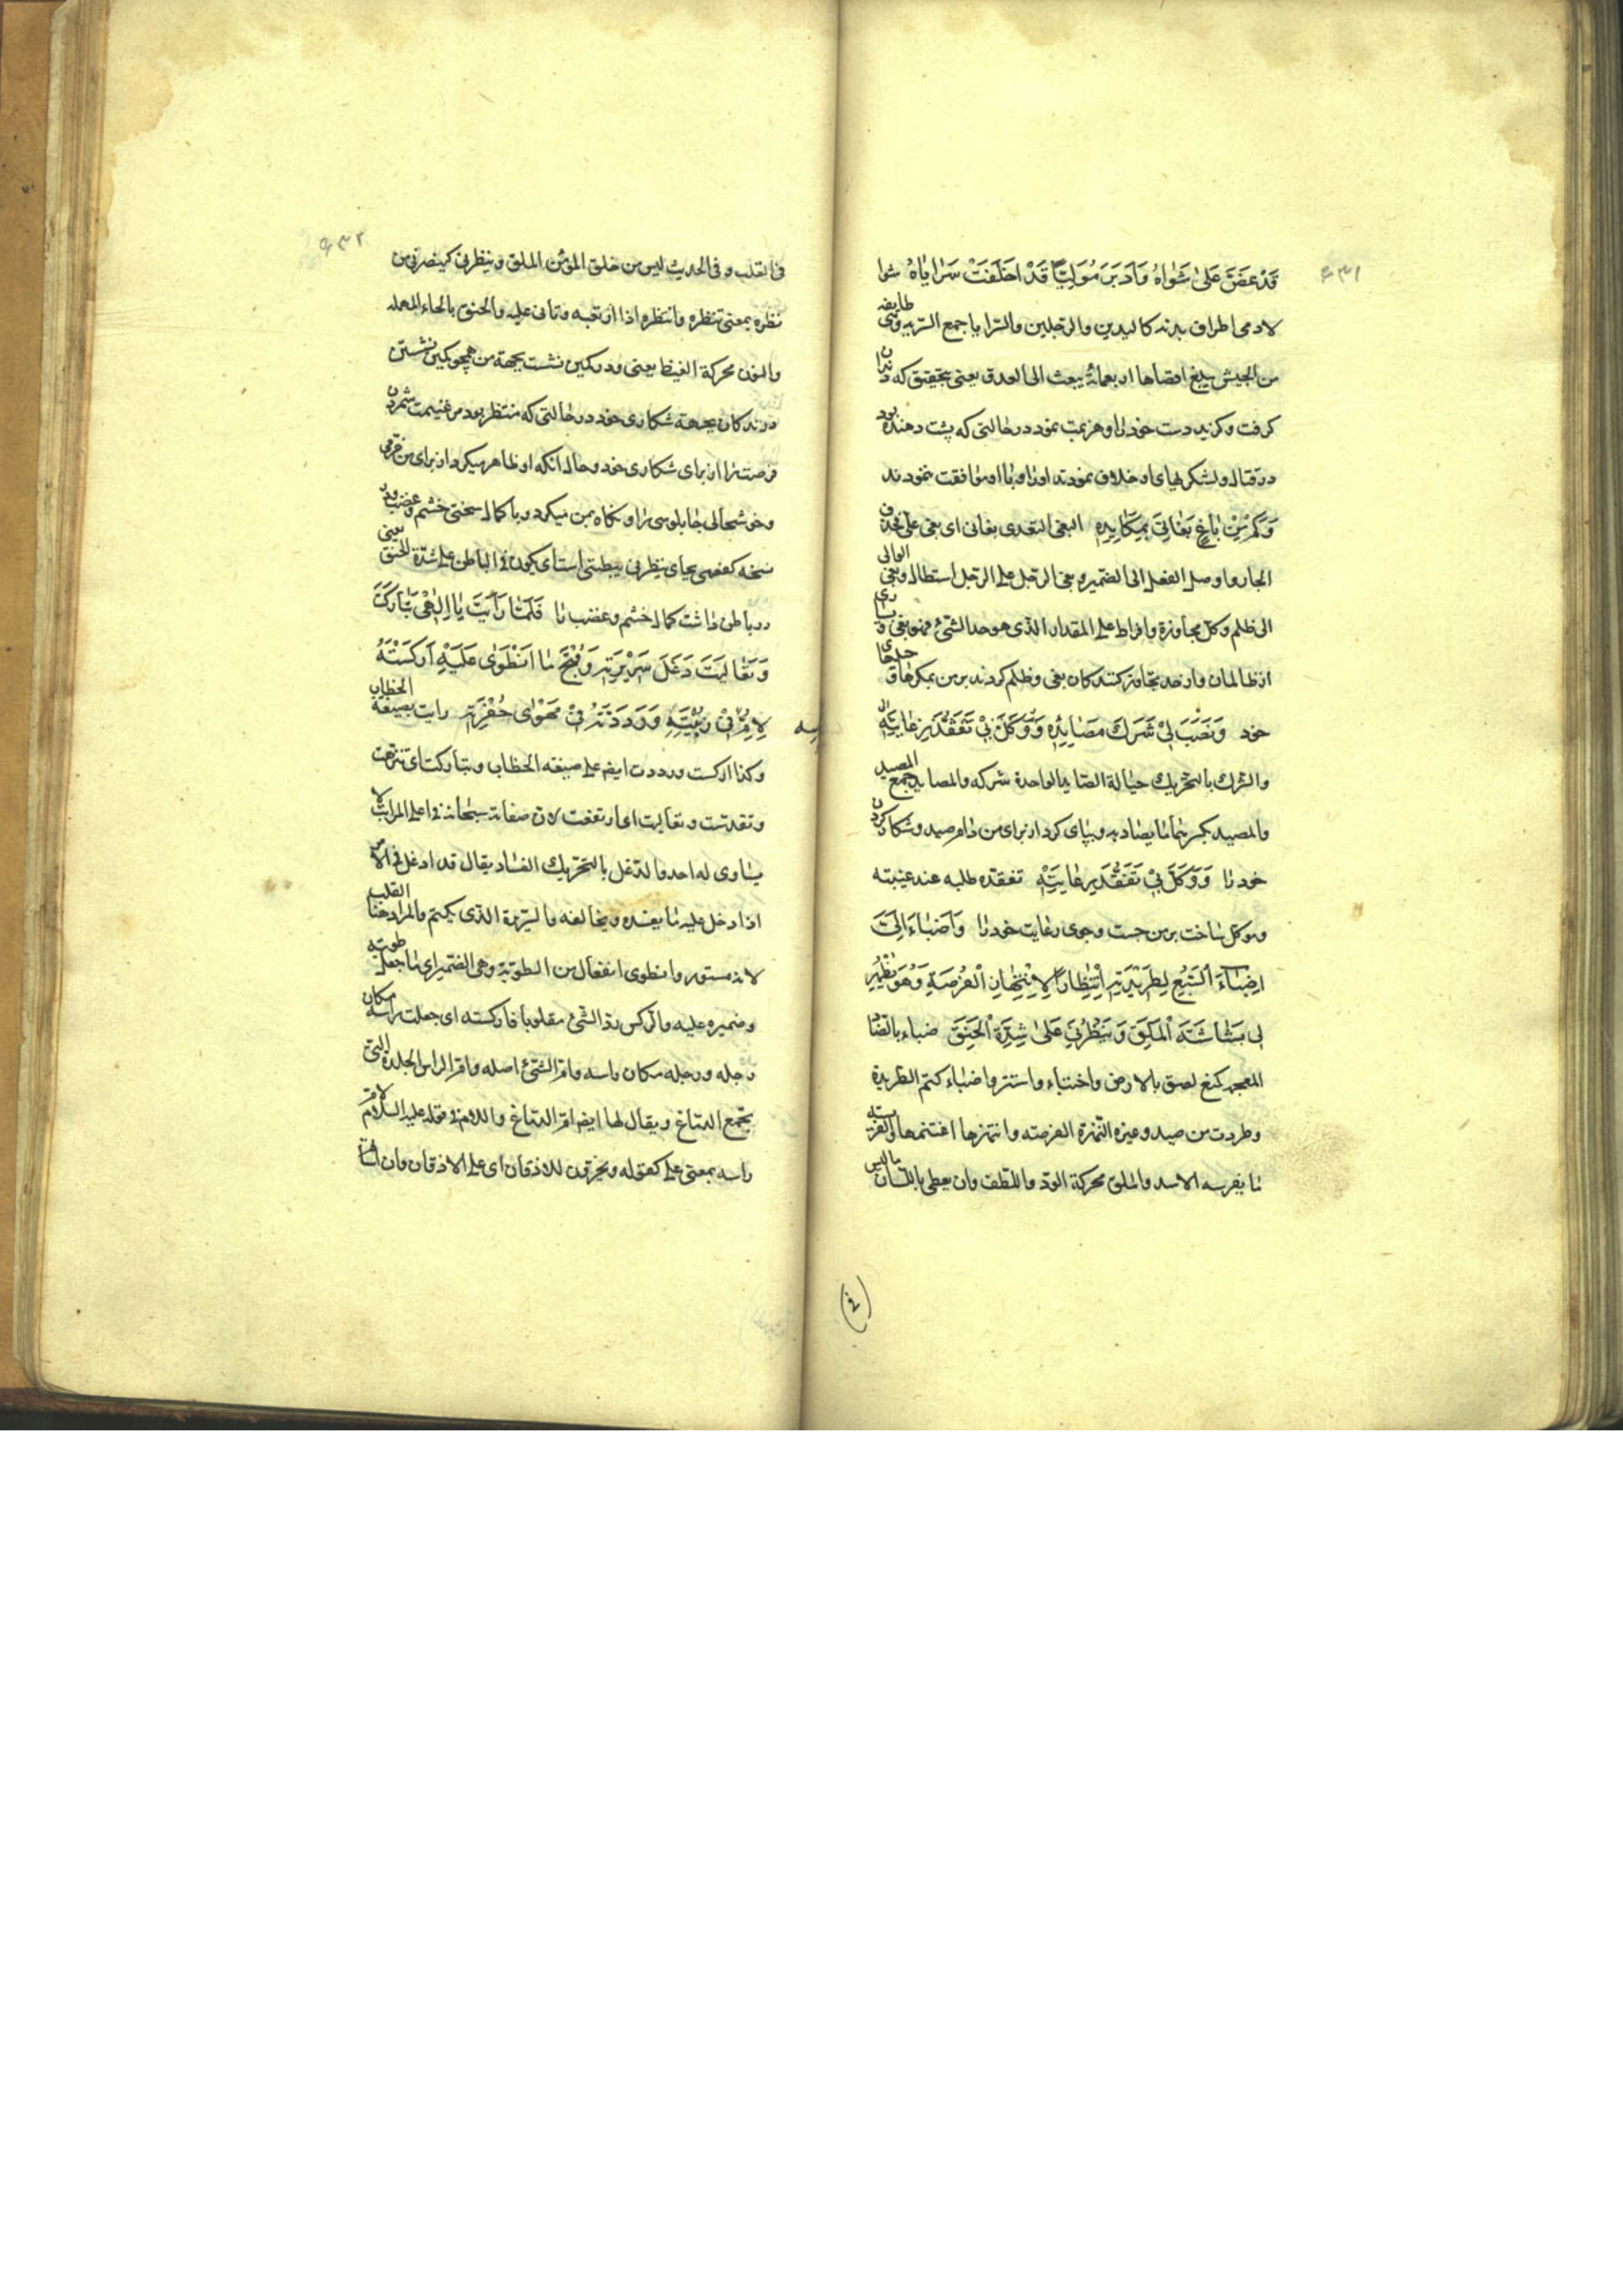 ۶۳۱
قَدْ عَضَّ عَلىٰ شَوٰاهُ وَاَدْبَرَ مُوَلِّيًا قَدْ اَخْلَفَتْ سَرٰايٰاهُ شوا
لادمی اطراف بدنه کالیدین والرجلین والسّرایا جمع السّریه وهی طایفه
من الجیش یبلغ اقصاها اربعمائة یبعث الی العدو یعنی بتحقیق که دندان
کرفت و کزید دست خود را و هزیمت نمود در حالتی که پشت دهنده بود
در قتال و لشکرهای او خلاف نمودند او را و با او موافقت ننمودند
وَكَمْ مِنْ بٰاغٍ بَغٰانِي بِمَكٰايِدِهِ البغی التعدی بغانی ای بغی علیّ فحذف
الجار و اوصل الفعل الی الضمیر و بغی الرجل علی الرجل استطال و بغی الوالی
ای ظلم و کلّ مجاوزة وافراط علی المقدار الذی هو حد الشئ فهو بغی و بسا
از ظالمان و از حد تجاوز کنندکان بغی و ظلم کردند بر من بمکرها و
خود وَنَصَبَ لِي شَرَكَ مَصٰايِدِهِ وَوَكَّلَ بِي تَفَقُّدَ رِعٰايَتِهِ
والشرك بالتحریك حبالة الصّاید الواحدة شرکه والمصاید جمع المصید
والمصید بکسر یصاد به و بپای کرد از برای من دام صید و شکار کردن
خود را وَوَكَّلَ بِي تَفَقُّدَ رِعٰايَتِهِ تفقده طلبه عند غیبته
و موکل ساخت بر من جست و جوی رعایت خود را وَاَضْبَاءَ اِلَيَّ
اِضْبٰاءَ السَّبُعِ لِطَرِيدَتِهِ اِنْتِظٰارًا لِانْتِهٰازِ الْفُرْصَةِ وَهُوَ يُظْهِرُ
لِي بَشٰاشَةَ الْمَلَقِ وَيَنْظُرُنِي عَلىٰ شِدَّةِ الْحَنَقِ ضباء بالضاد
المعجمه کمنع لصق بالارض واختباء واستتر واضباء کتم الطریدة
وطردت من صید وغیره النهزة الفرصته وانتهزها اغتنمها والفریسته
ما یفرسه الاسد والملق محرکة الودّ واللّطف وان یعطی باللسان ما لیس
۶۳۲
فی القلب و فی الحدیث لیس من خلق المؤمن الملق وینظرنی کینصرنی من
نظره بمعنی تنظره وانتظره اذا ارتقبه وتأنی علیه والحنق بالحاء المهملة
والنون محرکة الغیظ یعنی و در کمین نشست بجهة من همچو کمین نشستن
درندکان بجهة شکاری خود در حالتی که منتظر بود مر غنیمت شمردن
فرصت را از برای شکاری خود و حال انکه او ظاهر میکرد از برای من خرمی
و خوشحالی چاپلوسی را و نکاه بمن میکرد و با کمال سختی خشم و غضب و در
نسخه کفعمی بجای ینظرنی یبطننی است ای یکون فی الباطن علی شدّة الحنق یعنی
در باطن داشت کمال خشم و غضب را فَلَمّٰا رَاَيْتَ يٰا اِلٰهِي تَبٰارَكْتَ
وَتَعٰالَيْتَ دَغَلَ سَرِيرَتِهِ وَقُبْحَ مَا انْطَوىٰ عَلَيْهِ اَرْكَسْتَهُ
لِاُمِّ رَأْسِهِ فِي زُبْيَتِهِ وَرَدَدْتَهُ فِي مَهْوىٰ حُفْرَتِهِ رایت بصیغة الخطاب
وکذا ارکست ورددت ایضا علی صیغة الخطاب وتبارکت ای تنزهت
وتقدست وتعالیت ای ارتفعت لان صفاته سبحانه فی اعلی المراتب لا
یساوی له احد والدغل بالتحریك الفساد یقال قد ادغل فی الامر
اذا دخل علیه ما یفسده ویخالفه والسّریرة الذی یکتم والمراد هنا القلب
لانه مستور وانطوی انفعال من الطویّة وهی الضمیر ای ما جعله طویته
وضمیره علیه والرکس ردّ الشئ مقلوبا فارکسته ای جعلت راسه مکان
رجله ورجله مکان راسه وامّ الشئ اصله وامّ الراس الجلدة التی
تجمع الدماغ ویقال لها ایضا امّ الدماغ واللام فی قوله علیه السلام لامّ
راسه بمعنی علی کقوله ویخرّون للاذقان ای علی الاذقان وان اساتم